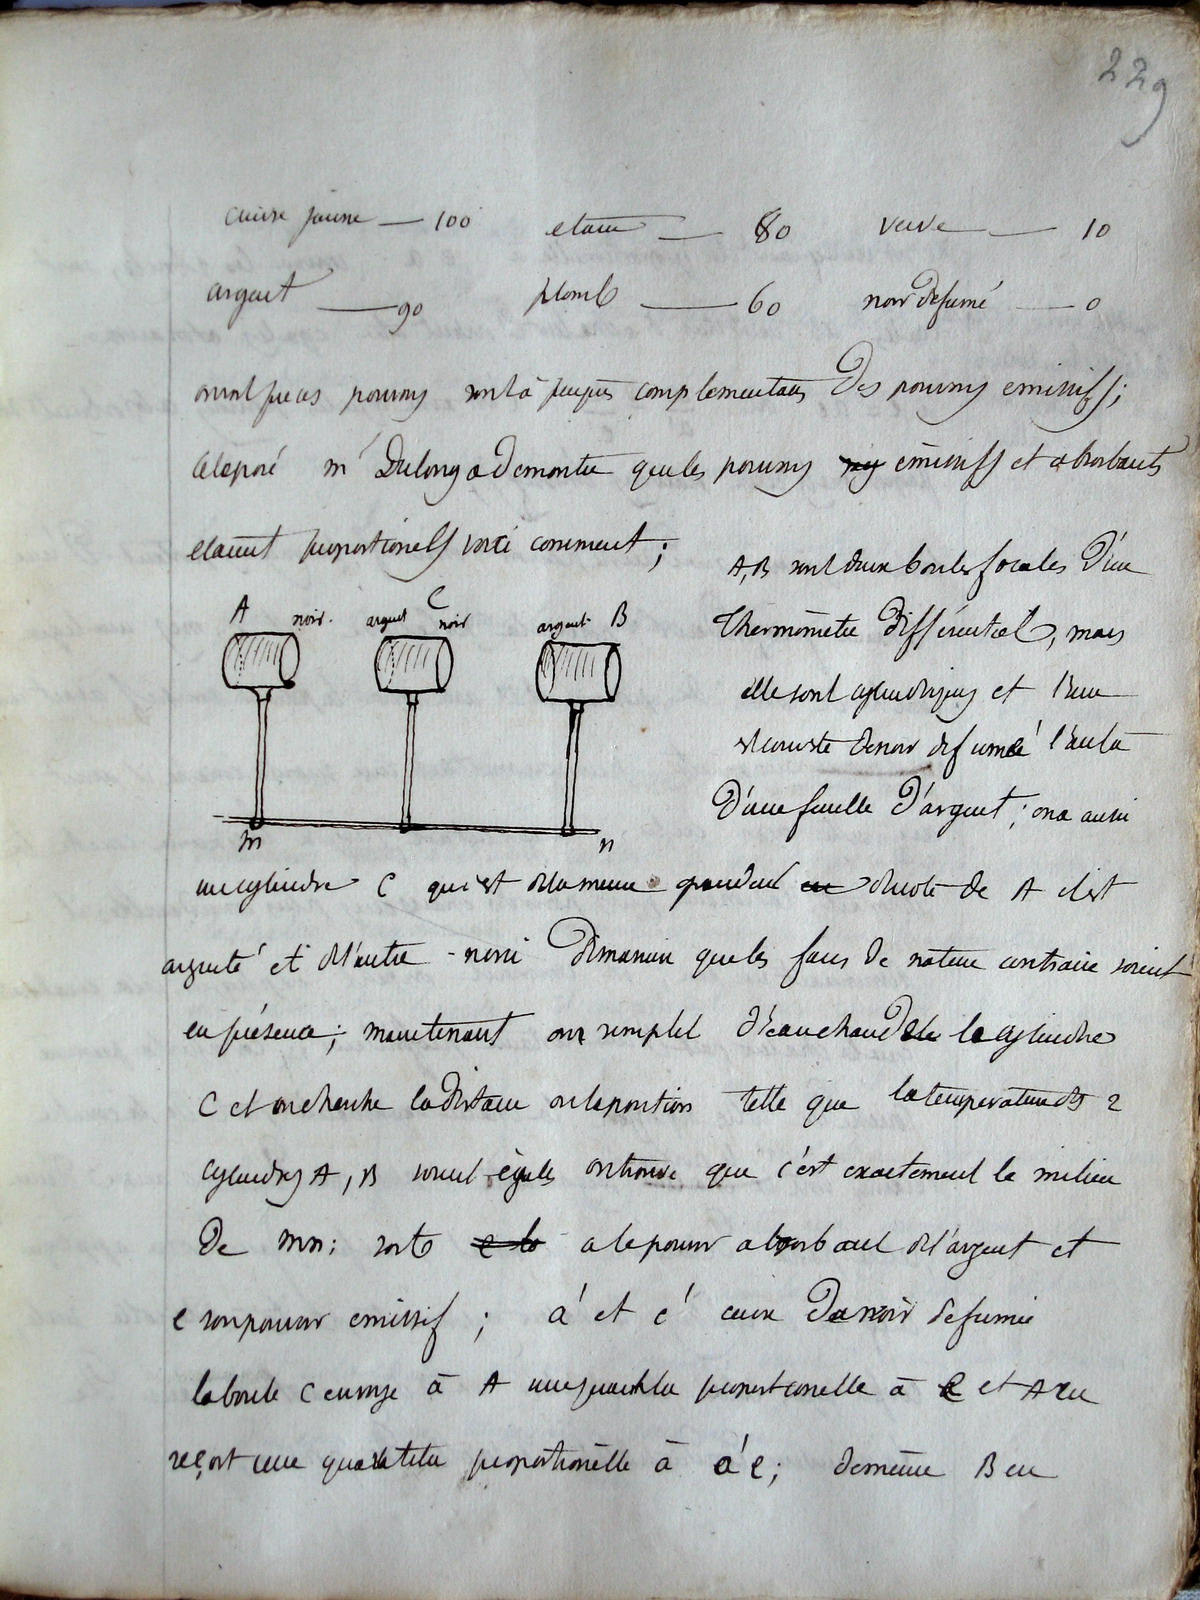 229
cuivre jaune — 100 etain — 80 verre — 10
argent — 90 plomb — 60 noir de fumé — 0
on voit que ces pouvoirs sont à peu près complementaires des pouvoirs emissifs;
cela posé mr Dulong a demontré que les pouvoirs emissifs et absorbants
etaient proportionels voici comment;
A noir. argent C noir argent B
m n
A, B sont deux boules focales d'un
thermomètre différentiel, mais
elle sont cylindriques et l'une
est couverte de noir de fumée l'autre
d'une feuille d'argent; on a aussi
un cylindre C qui est de la meme grandeur du coté de A il est
argenté et de l'autre noirci de maniere que les faces de nature contraire soient
en présence; maintenant on remplit d'eau chaude le cylindre
C et on cherche la distance ou la position telle que la temperature des 2
cylindres A, B soient égales on trouve que c'est exactement le milieu
de mn; soit a le pouvoir absorbant de l'argent et
e son pouvoir emissif; a' et e' ceux du noir de fumée
la boule C envoye à A une quantité proportionelle à e et A en
reçoit une quantité proportionèlle à a'e; de même B en